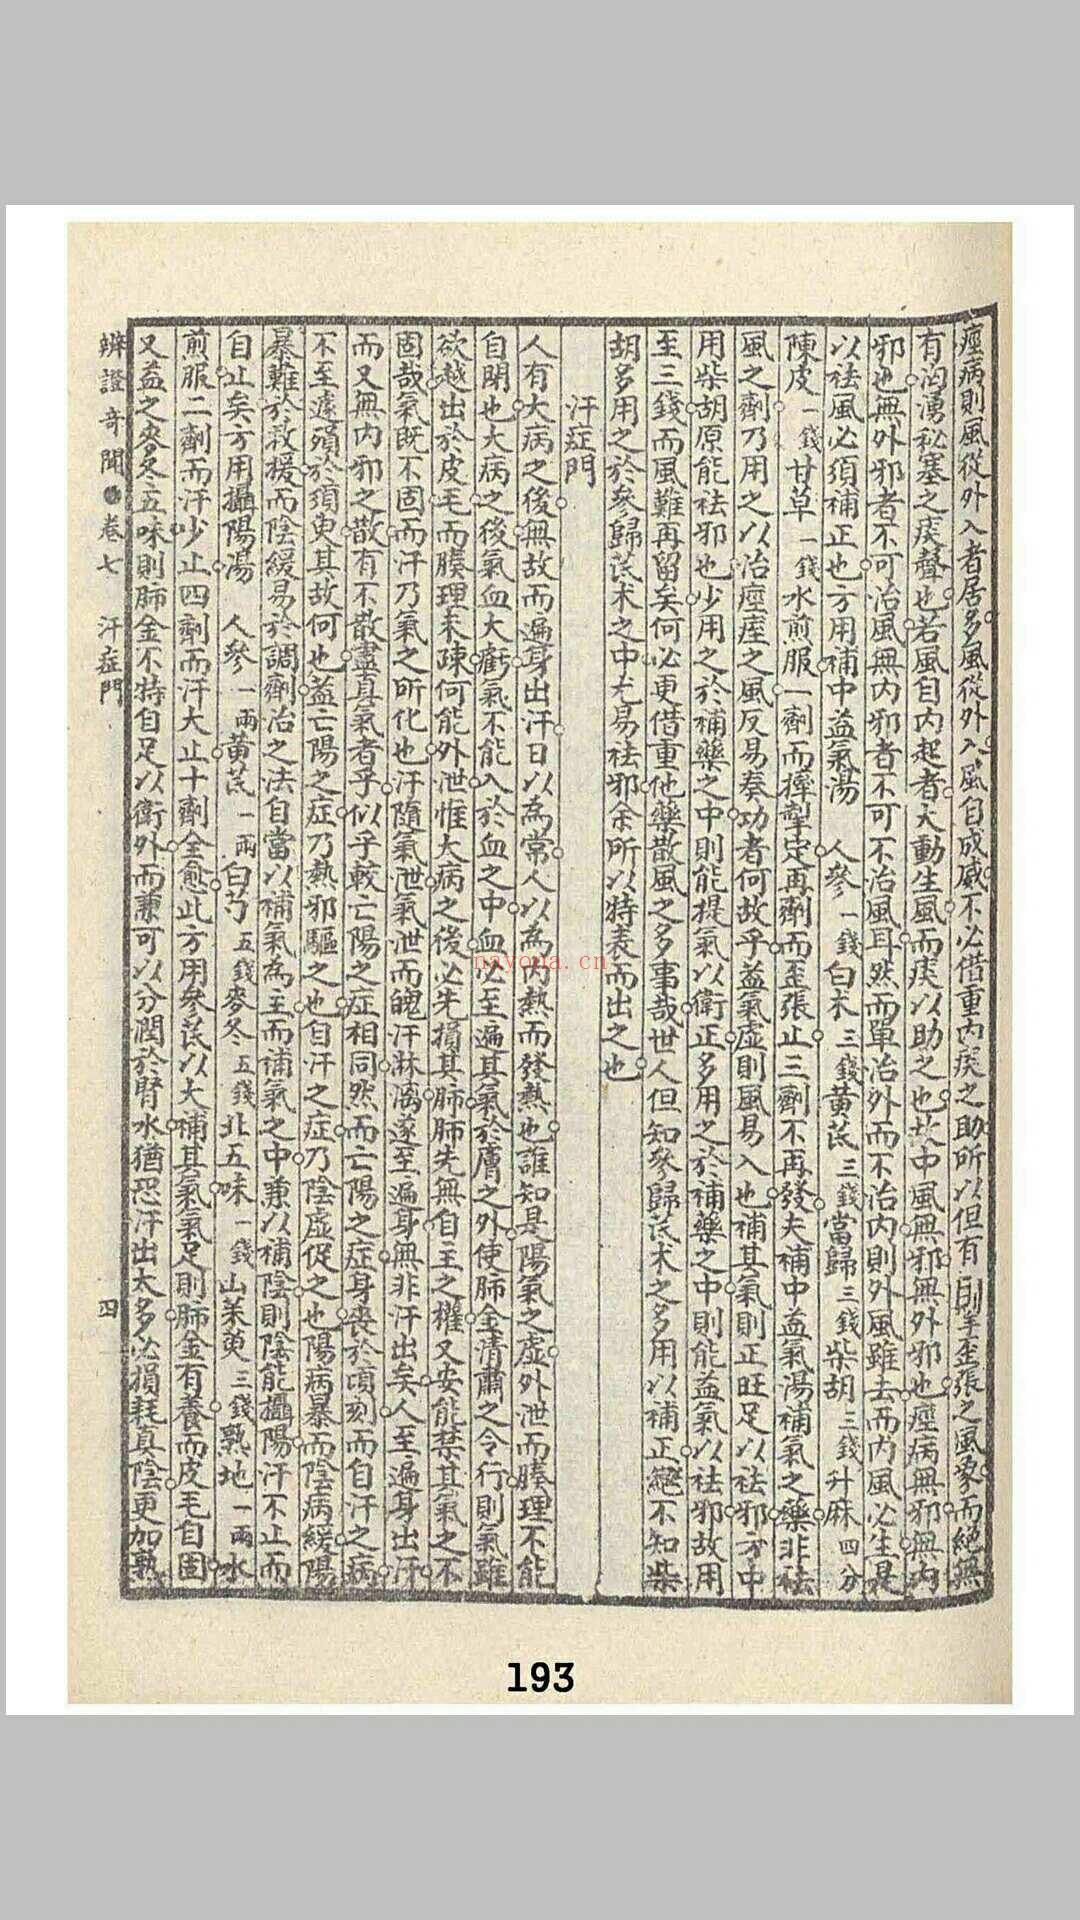 痙病則風從外入者居多風從外入風自成威不必借重內痰之助所以但有牽歪張之風象而絕無
有洶湧秘塞之痰聲也若風自內起者火動生風而痰以助之也故中風無邪無外邪也痙病無邪無內
邪也無外邪者不可治風無內邪者不可不治風耳然而單治外而不治內則外風雖去而內風必生是
以祛風必須補正也方用補中益氣湯　人參一錢白朮三錢黃芪三錢當歸三錢柴胡三錢升麻四分
陳皮一錢甘草一錢水煎服一劑而攣掣定再劑而歪張止三劑不再發夫補中益氣湯補氣之藥非祛
風之劑乃用之以治痙痙之風反易奏功者何故乎益氣虛則風易入也補其氣則正旺足以祛邪方中
用柴胡原能祛邪也少用之於補藥之中則能提氣以衛正多用之於補藥之中則能益氣以祛邪故用
至三錢而風難再留矣何必更借重他藥散風之多事哉世人但知參歸芪朮之多用以補正絕不知柴
胡多用之於參歸芪朮之中尤易祛邪余所以特表而出之也
汗症門
人有大病之後無故而遍身出汗日以為常人以為內熱而發熱也誰知是陽氣之虛外泄而腠理不能
自閉也大病之後氣血大虧氣不能入於血之中血必至遍其氣於膚之外使肺金清肅之令行則氣雖
欲越出於皮毛而腠理未疎何能外泄惟大病之後必先損其肺肺先無自主之權又安能禁其氣之不
固哉氣既不固而汗乃氣之所化也汗隨氣泄氣泄而魄汗淋漓遂至遍身無非汗出矣人至遍身出汗
而又無內邪之散有不散盡真氣者乎似乎較亡陽之症相同然而亡陽之症身喪於頃刻而自汗之病
不至遽殞於須臾其故何也益亡陽之症乃熱邪驅之也自汗之症乃陰虛促之也陽病暴而陰病緩陽
暴難於救援而陰緩易於調劑治之法自當以補氣為主而補氣之中兼以補陰則陰能攝陽汗不止而
自止矣方用攝陽湯　人參一兩黃芪一兩白芍五錢麥冬五錢北五味一錢山茱萸三錢熟地一兩水
煎服二劑而汗少止四劑而汗大止十劑全愈此方用參芪以大補其氣氣足則肺金有養而皮毛自固
又益之麥冬五味則肺金不特自足以衛外而兼可以分潤於腎水猶恐汗出太多必損耗真陰更加熟
辨證奇聞　卷七　汗症門　四
nayona.cn
193